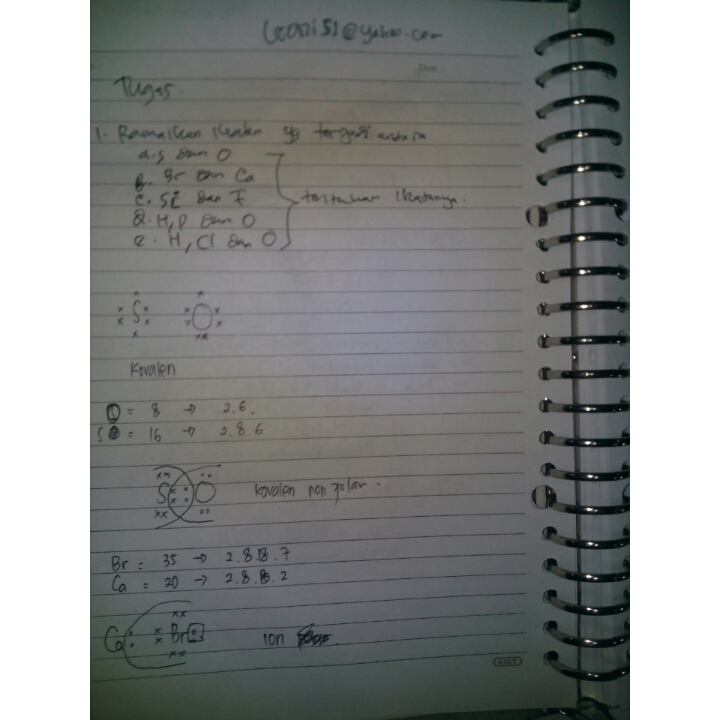 @yahoo.com
Tugas.
1. Ramalkan Ikatan yg terjadi antara
a. S dan O
b. Br dan Ca
c. Si dan F
d. H, P dan O
e. H, Cl dan O
tentukan Ikatannya.
S O
Kovalen
O = 8 → 2.6.
S = 16 → 2.8.6
S O kovalen non polar.
Br = 35 → 2.8.18.7
Ca = 20 → 2.8.8.2
Ca Br ion
KIKY